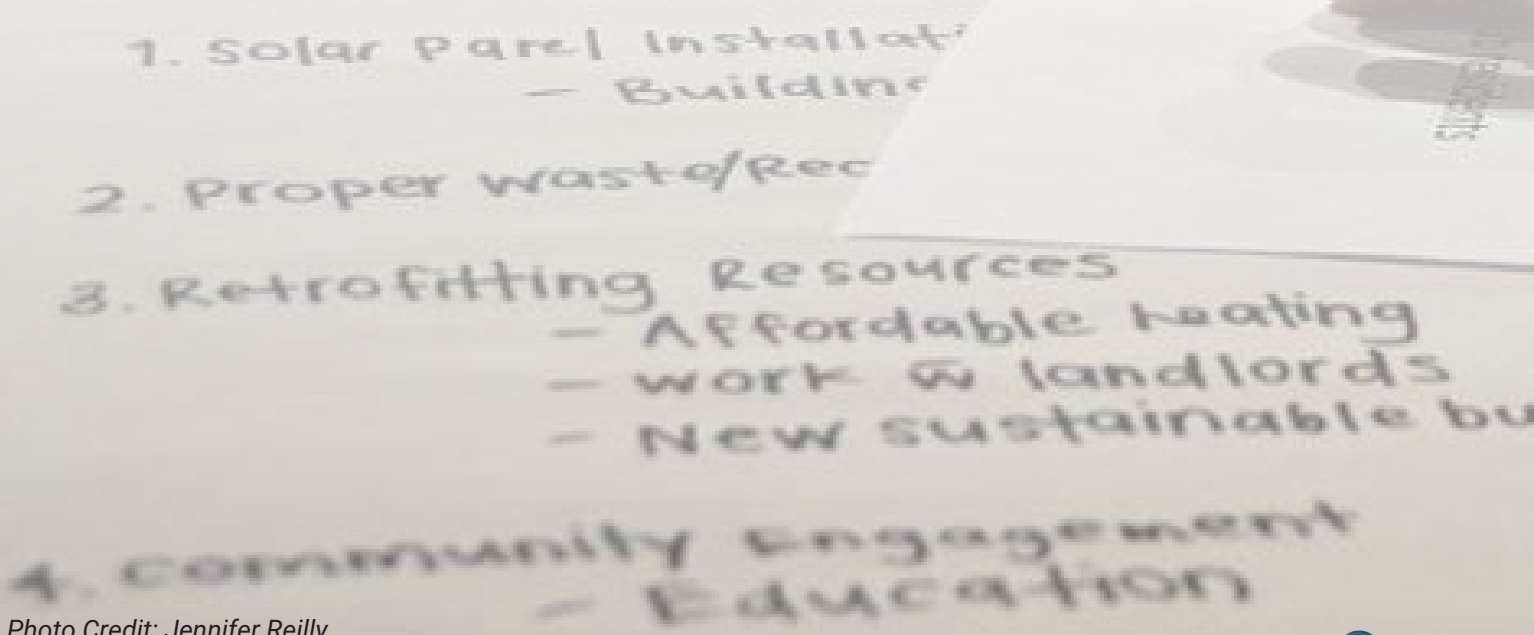 1. Solar Panel Installati
- Building
2. Proper Waste/Rec
3. Retrofitting Resources
- Affordable heating
- work w̄ landlords
- New sustainable bu
4. Community Engagement
- Education
Photo Credit: Jennifer Reilly